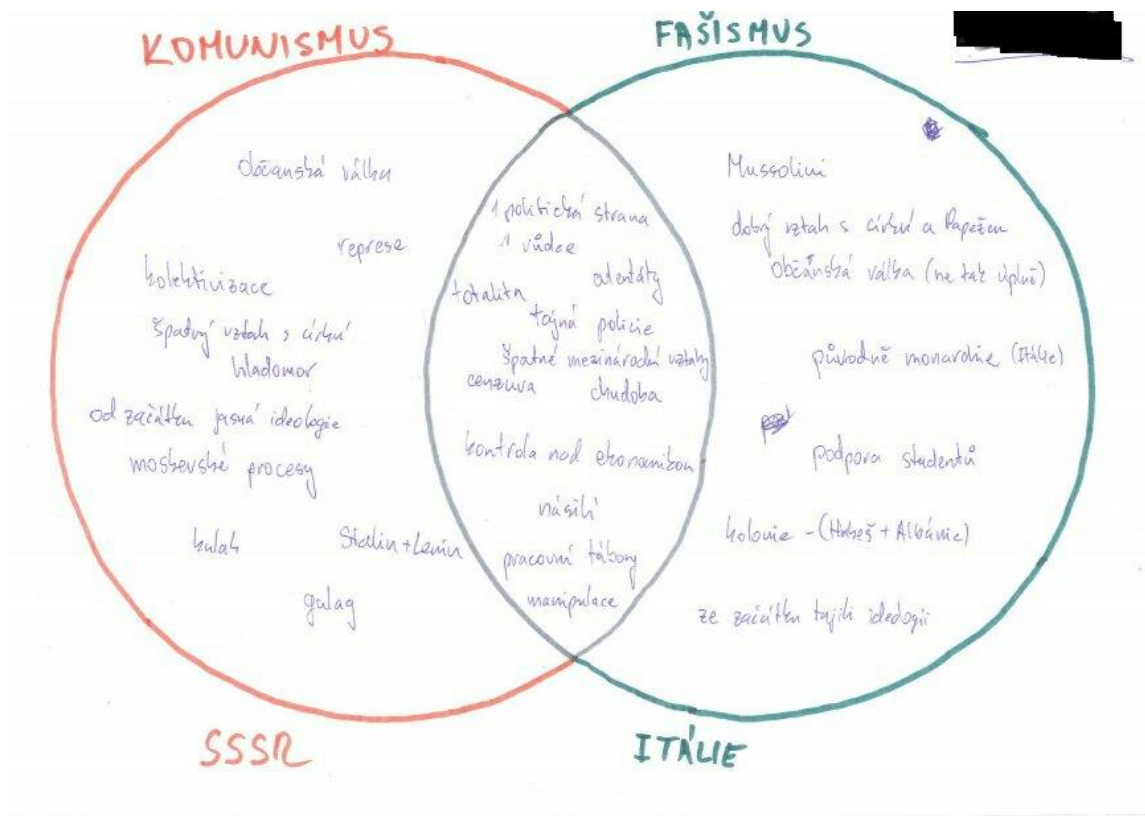 KOMUNISMUS
FAŠISMUS
občanská válka
represe
kolektivizace
špatný vztah s církví
hladomor
od začátku jasná ideologie
moskevské procesy
kulak
Stalin + Lenin
gulag
1 politická strana
1 vůdce
atentáty
totalita
tajná policie
špatné mezinárodní vztahy
cenzura
chudoba
kontrola nad ekonomikou
násilí
pracovní tábory
manipulace
Mussolini
dobrý vztah s církví a Papežem
občánská válka (ne tak úplně)
původně monarchie (Itálie)
podpora studentů
kolonie - (Habeš + Albánie)
ze začátku tajili ideologii
SSSR
ITÁLIE